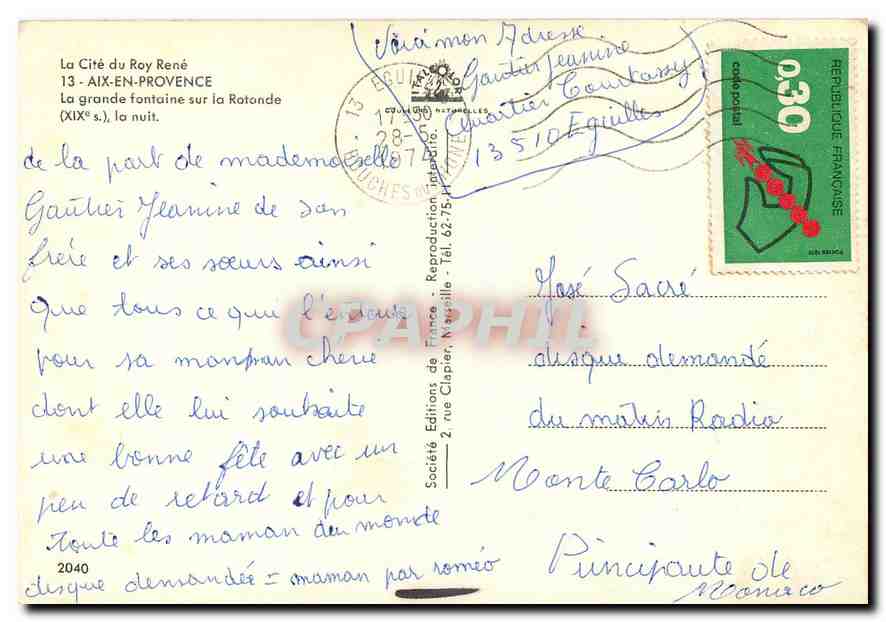 La Cité du Roy René
13 - AIX-EN-PROVENCE
La grande fontaine sur la Rotonde
(XIXe s.), la nuit.
Voici mon Adresse
Gautier Jeanine
Quartier Courtassy
13510 Eguilles
ITALCOLOR
COULEURS NATURELLES
13 EGUILLES
17-30
28-5
1974
BOUCHES DU RHONE
0,30
code postal
REPUBLIQUE FRANÇAISE
POSTES 1972
de la part de mademoiselle
Gautier Jeanine de son
frère et ses sœurs ainsi
que tous ce qui l'entoure
pour sa manman chérie
dont elle lui souhaite
une bonne fête avec un
peu de retard et pour
toute les maman du monde
disque demandée = maman par roméo
2040
Société Editions de France - Reproduction interdite.
2, rue Clapier, Marseille - Tél. 62-75-11
José Sacré
disque demandé
du matin Radio
Monte Carlo
Principaute de
Monaco
CPAPHIL